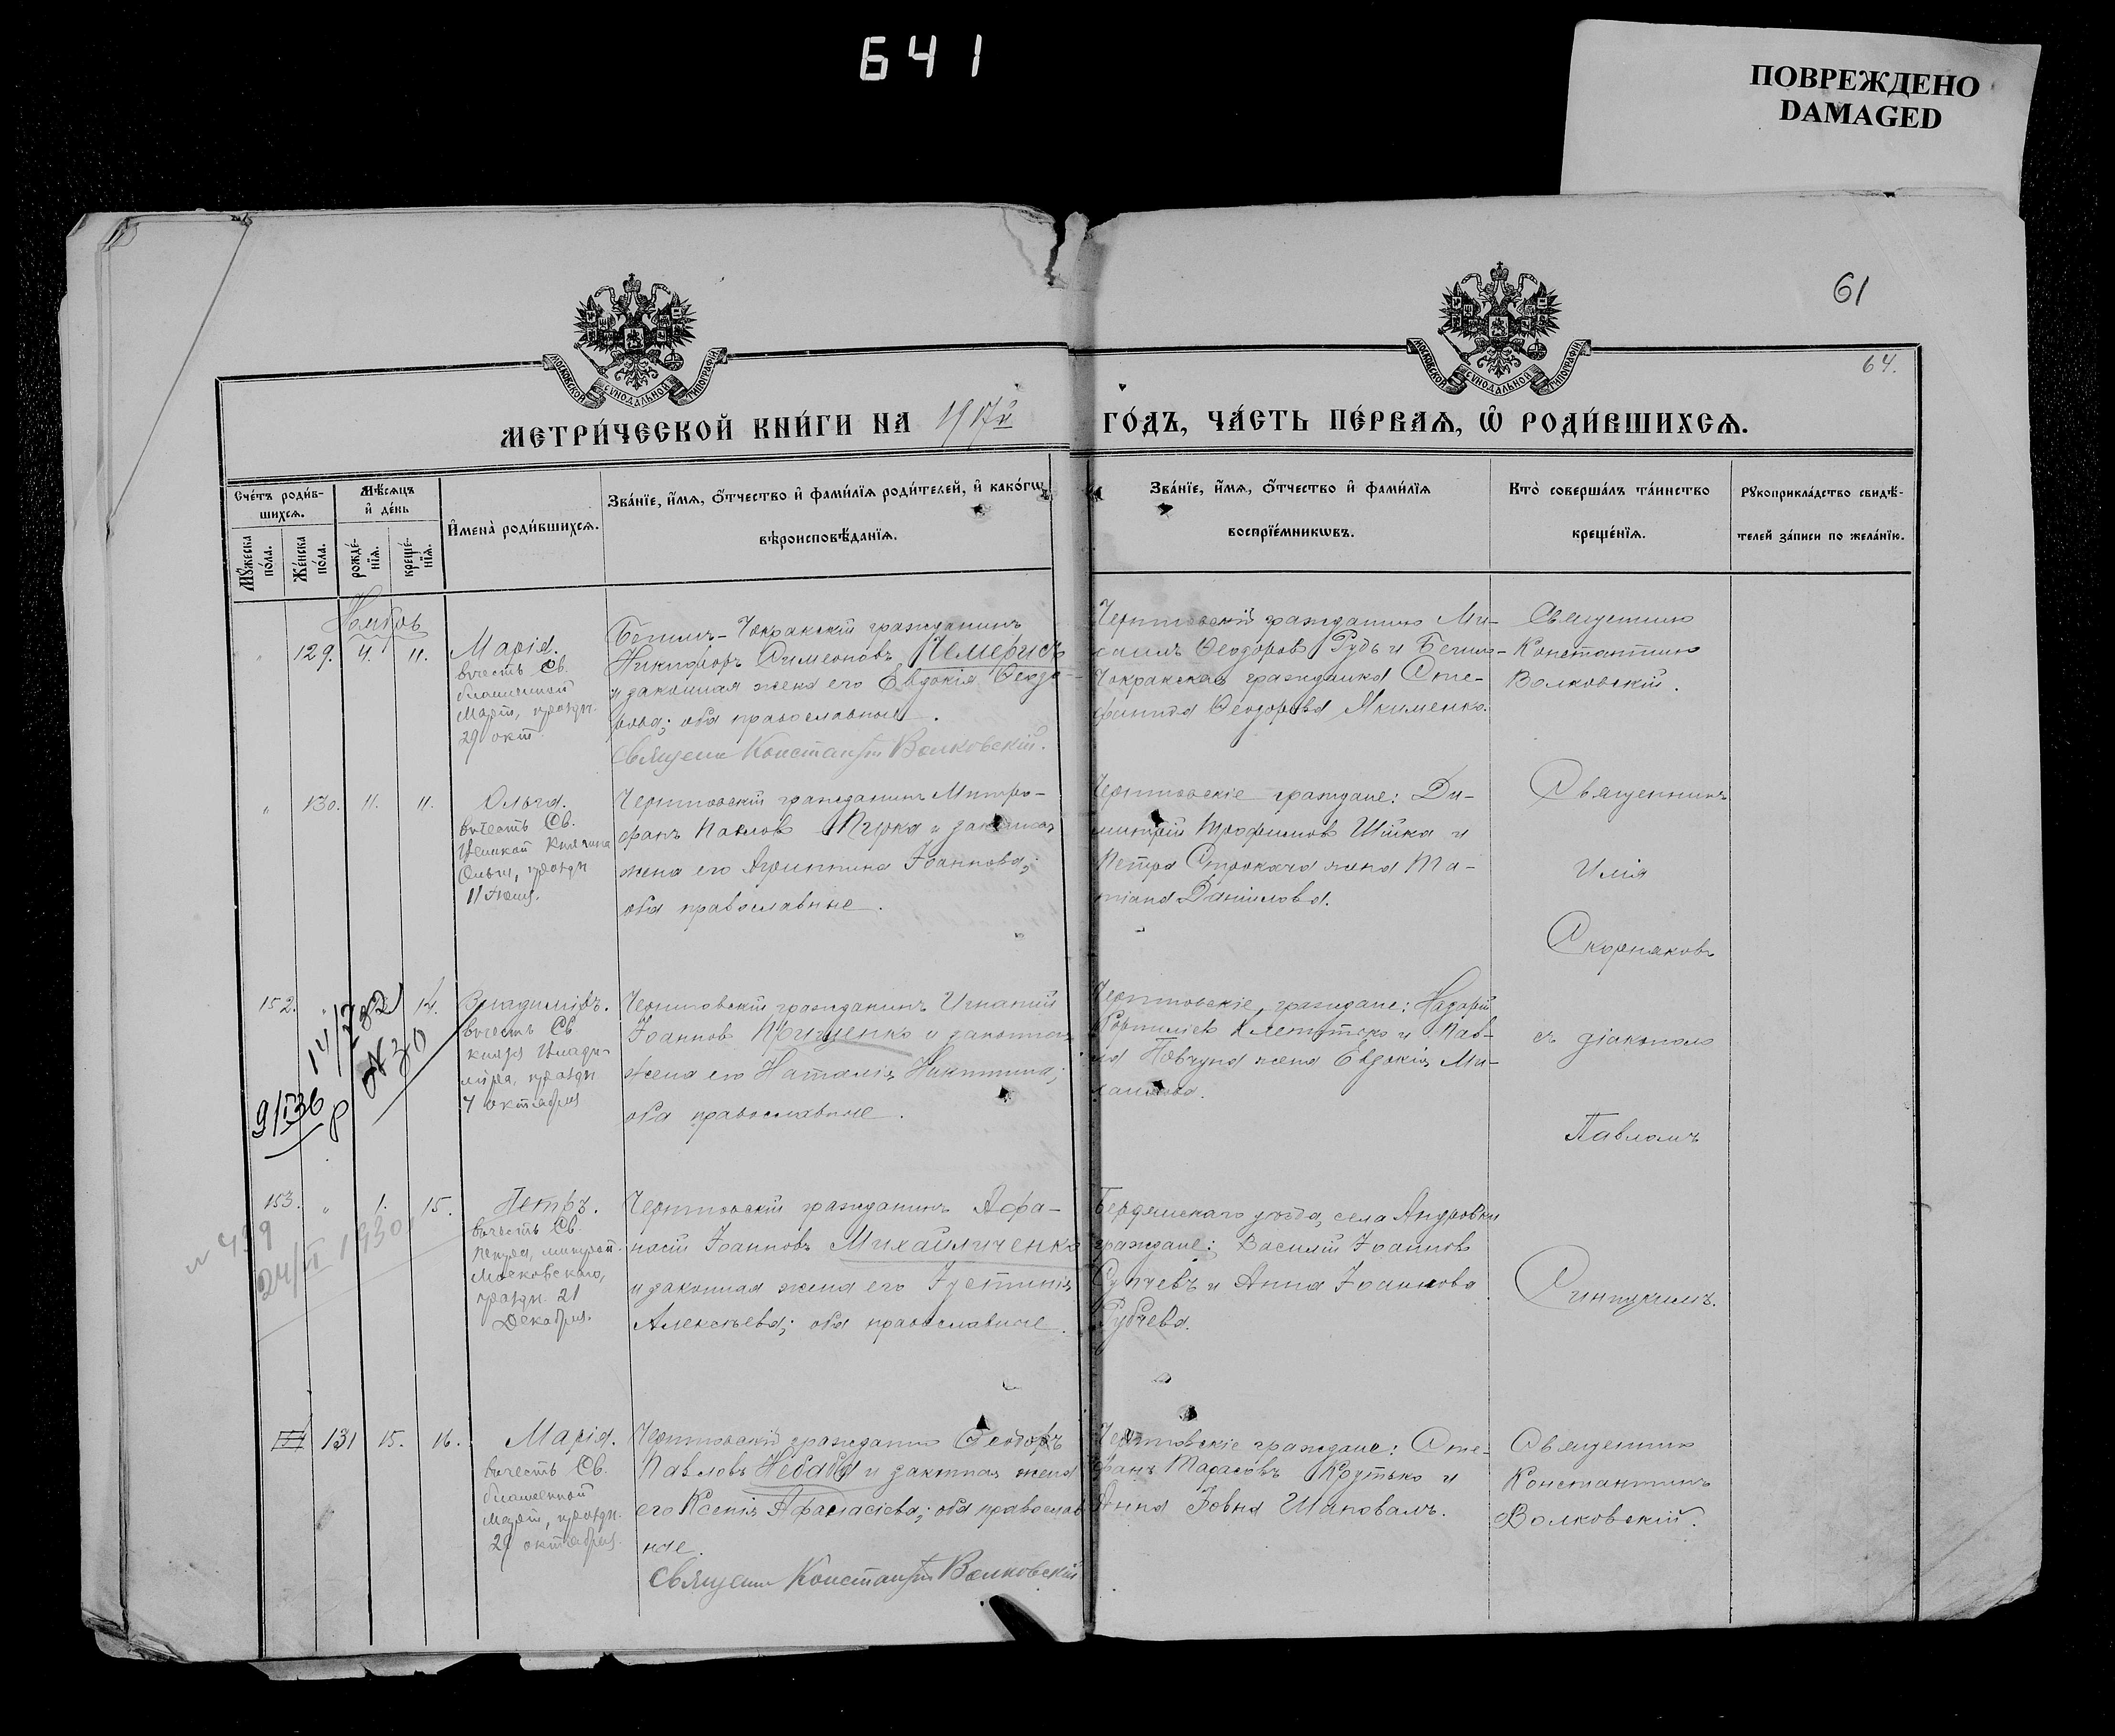 641
ПОВРЕЖДЕНО
DAMAGED
61
64.
МОСКОВСКОЙ СУНОДАЛЬНОЙ ТИПОГРАФІИ
МОСКОВСКОЙ СУНОДАЛЬНОЙ ТИПОГРАФІИ
МЕТРИ́ЧЕСКОЙ КНИ́ГИ НА 1917й ГО́ДЪ, ЧА́СТЬ ПЕ́РВАѦ, Ѡ҆ РОДИ́ВШИХСѦ.
Сче́тъ роди́в-
шихсѧ.
Мꙋ́жеска по́ла.
Же́нска по́ла.
Мѣ́сѧцъ
и҆ де́нь
рожде́-
нїѧ.
креще́-
нїѧ.
И҆мена̀ роди́вшихсѧ.
Зва́нїе, и҆́мѧ, ѻ҆́тчество и҆ фами́лїѧ роди́телей, и҆ како́гѡ
вѣроисповѣ́данїѧ.
Зва́нїе, и҆́мѧ, ѻ҆́тчество и҆ фами́лїѧ
воспрїе́мникѡвъ.
Кто̀ соверша́лъ та́инство
креще́нїѧ.
Рꙋкоприкла́дство свидѣ́-
телей за́писи по жела́нїю.
Ноябрь
" 129. 4. 11.
Марія.
въ честь Св.
блаженной
Маріи, праздн.
29 окт.
Бегимъ-Чокракскій гражданинъ
Никифоръ Симеоновъ Чемерисъ
и законная жена его Евдокія Ѳеодо-
рова; оба православные.
Священ. Константинъ Волковскій.
Черниговскій гражданинъ Ми-
хаилъ Ѳеодоровъ Рудь и Бегимъ-
Чокракская гражданка Сте-
фанида Ѳеодорова Якименко.
Священникъ
Константинъ
Волковскій.
" 130. 11. 11.
Ольга.
въ честь Св.
Великой Княгини
Ольги, праздн
11 Іюля.
Черниговскій гражданинъ Митро-
фанъ Павловъ и законная
жена его Агрипина Іоаннова;
оба православные.
Черниговскіе граждане: Ди-
митрій Трофимовъ Шійка и
Петра жена Та-
тіана Даніилова.
Священникъ
Илія
Скорняковъ
съ діакономъ
Павломъ
152. " 14.
14/782
№ 30
9/I 36
Владиміръ.
въ честь Св.
князя Влади-
міра, праздн
4 октября
Черниговскій гражданинъ Игнатій
Іоанновъ Прищенко и законная
жена его Наталія Никитина;
оба православные.
Черниговскіе граждане: Назарій
Корниліевъ и Пав-
ла жена Евдокія Ми-
хаилова.
153. " 1. 15.
№ 439
24/II 1930
Петръ.
въ честь Св.
Петра, митроп.
Московскаго,
праздн. 21
Декабря.
Черниговскій гражданинъ Афа-
насій Іоанновъ Михайличенко
и законная жена его Іустинія
Алексѣева; оба православные.
Бердянскаго уѣзда, села Андровки
граждане: Василій Іоанновъ
и Анна Іоаннова
131 15. 16.
Марія.
въ честь Св.
блаженной
Маріи, праздн.
29 октября.
Черниговскій гражданинъ Ѳеодоръ
Павловъ Небаба и законная жена
его Ксенія Афанасіева; оба православ
ные.
Священ. Константинъ Волковскій
Черниговскіе граждане: Сте-
фанъ Тарасовъ Крутько и
Анна Іовна Шаповалъ.
Священникъ
Константинъ
Волковскій.